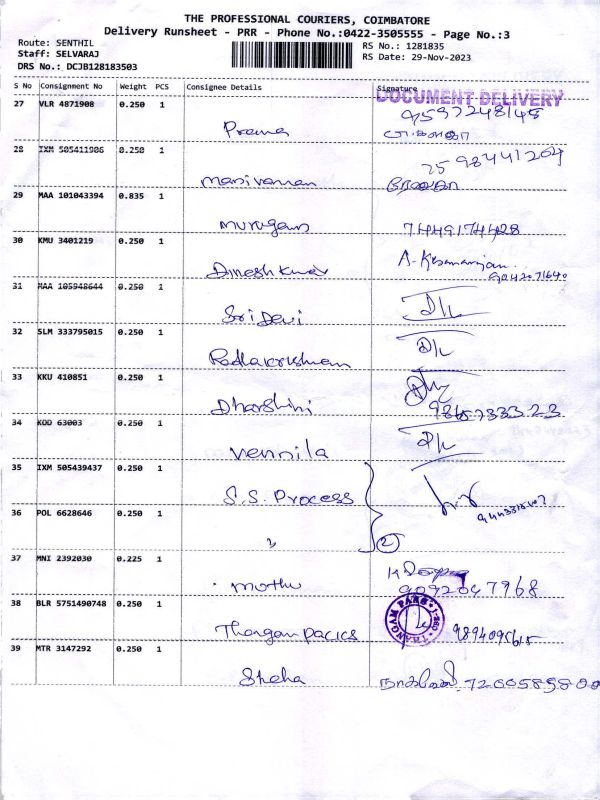 THE PROFESSIONAL COURIERS, COIMBATORE
Delivery Runsheet - PRR - Phone No.:0422-3505555 - Page No.:3
Route: SENTHIL
Staff: SELVARAJ
DRS No.: DCJB128183503
RS No.: 1281835
RS Date: 29-Nov-2023
S No Consignment No Weight PCS Consignee Details Signature
DOCUMENT DELIVERY
27 VLR 4871908 0.250 1
28 IXM 505411986 0.250 1
Manivannan
29 MAA 101043394 0.835 1
Murugan 7449174428
30 KMU 3401219 0.250 1
Dineshkumar
9042071640
31 MAA 105948644 0.250 1
Sri Devi
32 SLM 333795015 0.250 1
Radhakrishnan
33 KKU 410851 0.250 1
Dharshini
34 KOD 63003 0.250 1
Vennila
35 IXM 505439437 0.250 1
S.S. Process
36 POL 6628646 0.250 1
2
37 MNI 2392030 0.225 1
Mothu 9092047968
38 BLR 5751490748 0.250 1
Thangam Pacics
39 MTR 3147292 0.250 1
Sneha